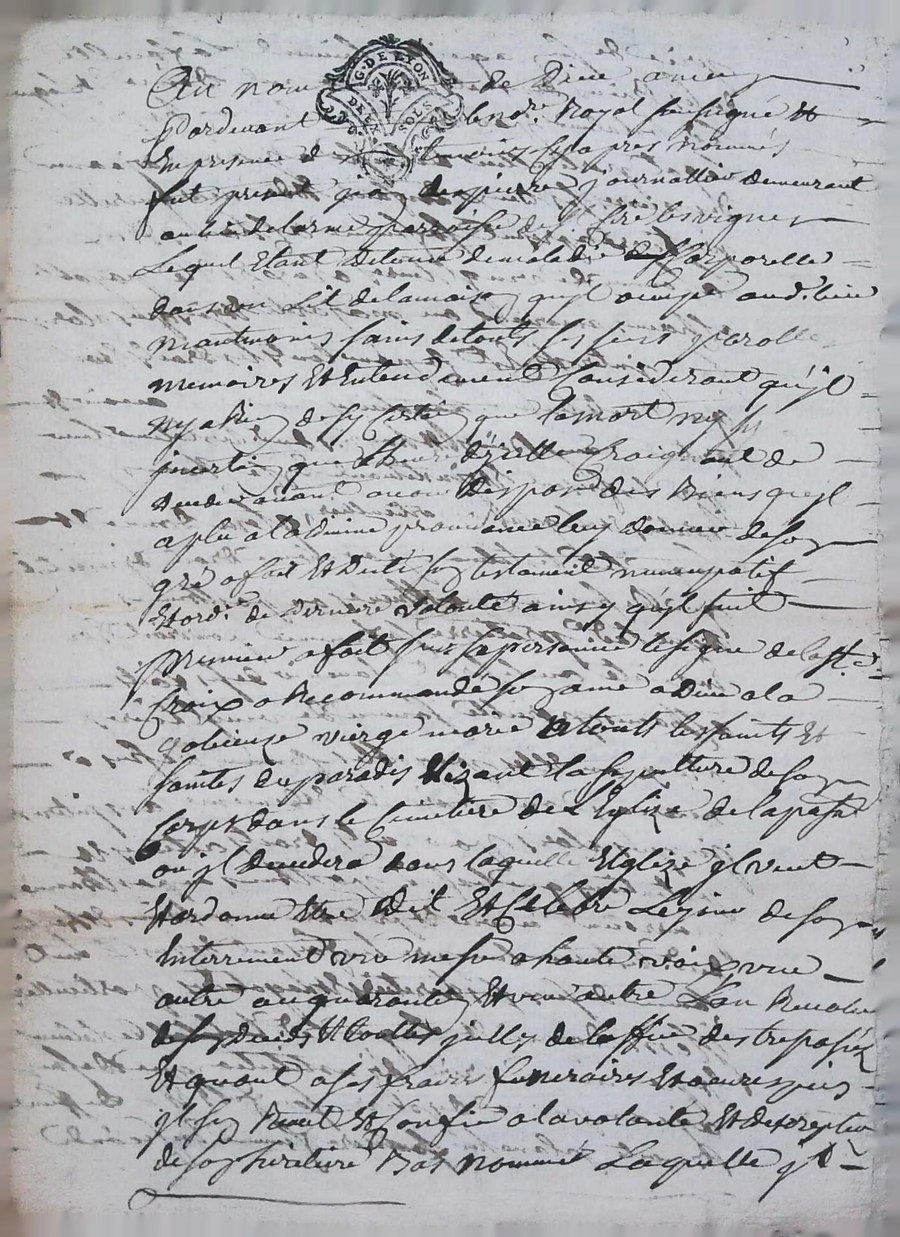 G. DE LYON
DEUX SOLS
Au nom de Dieu amen
Pardevant le no.re Royal soussigné et
En presence des temoins cy apres nommés
fut present jean depierre journallier demeurant
au lieu de larme parroisse de les vignes
Lequel Etant detenu de maladie Corporelle
dans un Lit de la maison qu'jl occupe aud. lieu
maintmoins sains de touts ses sens parolle
memoires Et Entendement Considerant qu'jl
ny a Rien de sy Certain que la mort ny sy
jncertain que l'heure d'jcelle Craignant de
deceder avant avoir Disposé des Biens qu'jl
a plu a la divine providence luy donner de son
gré a fait Et Dicté son testament nuncupatif
Et ord.ce de derniere volonté ainsy qu'jl suit
Premier a fait sur sa personne le signe de la s.te
Croix a Recommandé son ame a Dieu a la
glorieuze vierge marie Et touts les saints Et
saintes du paradis Elizant la sepulture de son
Corps dans le Cimetiere de l'Eglize de la par.sse
ou jl decedera dans laquelle Eglize jl veut
Et ordonne Etre Dit Et Celebré Le jour de son
Enterrement une messe a haute voix une
autre au quarantin Et une autre L'an Revolu
de son Decés Et toutes jcelles de l'office des trepassés
Et quant a ses fraix funeraires Et œuvres pies
jl s'en Remet Et Confie a la volonté Et discreption
de son heritiere Bas nommée Laquelle jl